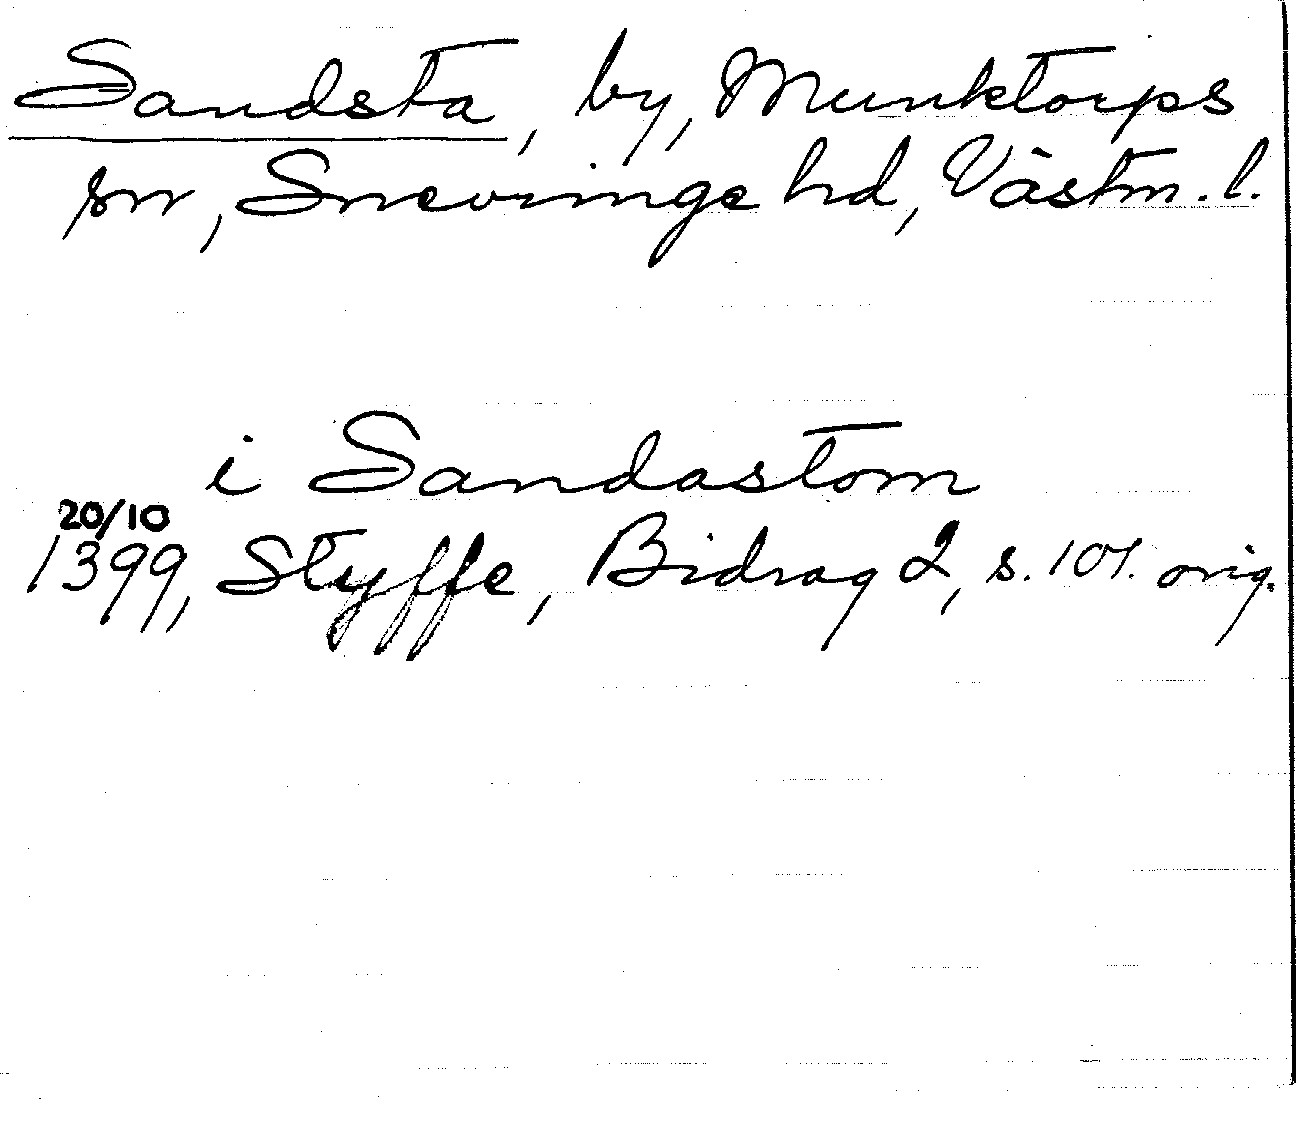 Sandsta, by, Munktorps
sn, Snevringe hd, Västm. l.
i Sandastom
20/10
1399, Styffe, Bidrag 2, s. 101. orig.